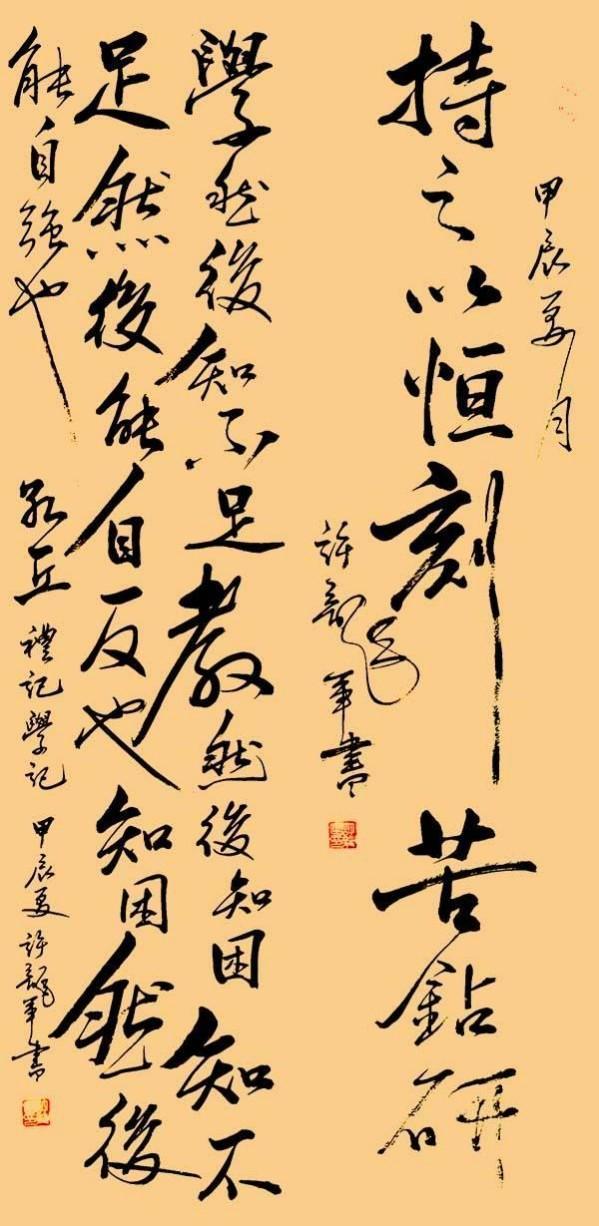 甲辰夏月
持之以恒刻苦鉆研
許龍軍書
學然後知不足教然後知困知不
足然後能自反也知困然後
能自強也
孔丘 禮記學記 甲辰夏許龍軍書